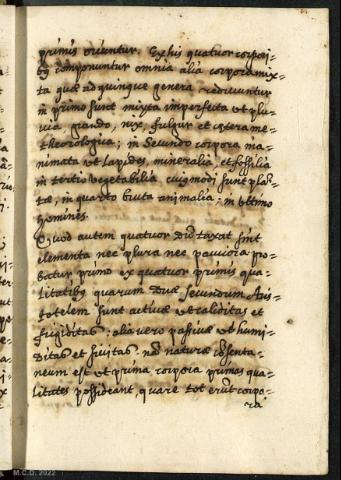 primis oriuntur. Ex his quatuor corpori=
bus componuntur omnia alia corpora mix=
ta quæ ad quinque genera rediuuntur
in primo sunt mixta imperfecta ut plu=
uia, grando, nix, fulgur et cætera me=
theorologica; in secundo corpora ina=
nimata ut lapides, mineralia, et fossilia
in tertio vegetabilia cuiusmodi sunt plan=
tæ; in quarto bruta animalia; in ultimo
homines.
Quod autem quatuor dũtaxat sint
elementa nec plura nec pauciora pro=
batur primo ex quatuor primis qua=
litatibus quarum duæ secundum Aris=
totelem sunt activæ ut caliditas et
frigiditas: aliæ vero passivæ ut humi=
ditas et sicitas: naturæ cõsenta=
neum est ut prima corpora primas qua=
litates possideant, quare tot erũt corpo=
ra
M.C.D. 2022